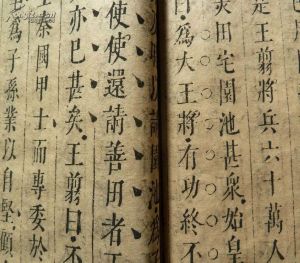 是王翦將兵六十萬人
美田宅園池甚衆始皇
曰爲大王將有功終不
以請園池爲
使使還請善田者五
亦已甚矣王翦曰不
秦國甲士而專委於
爲子孫業以自堅顧